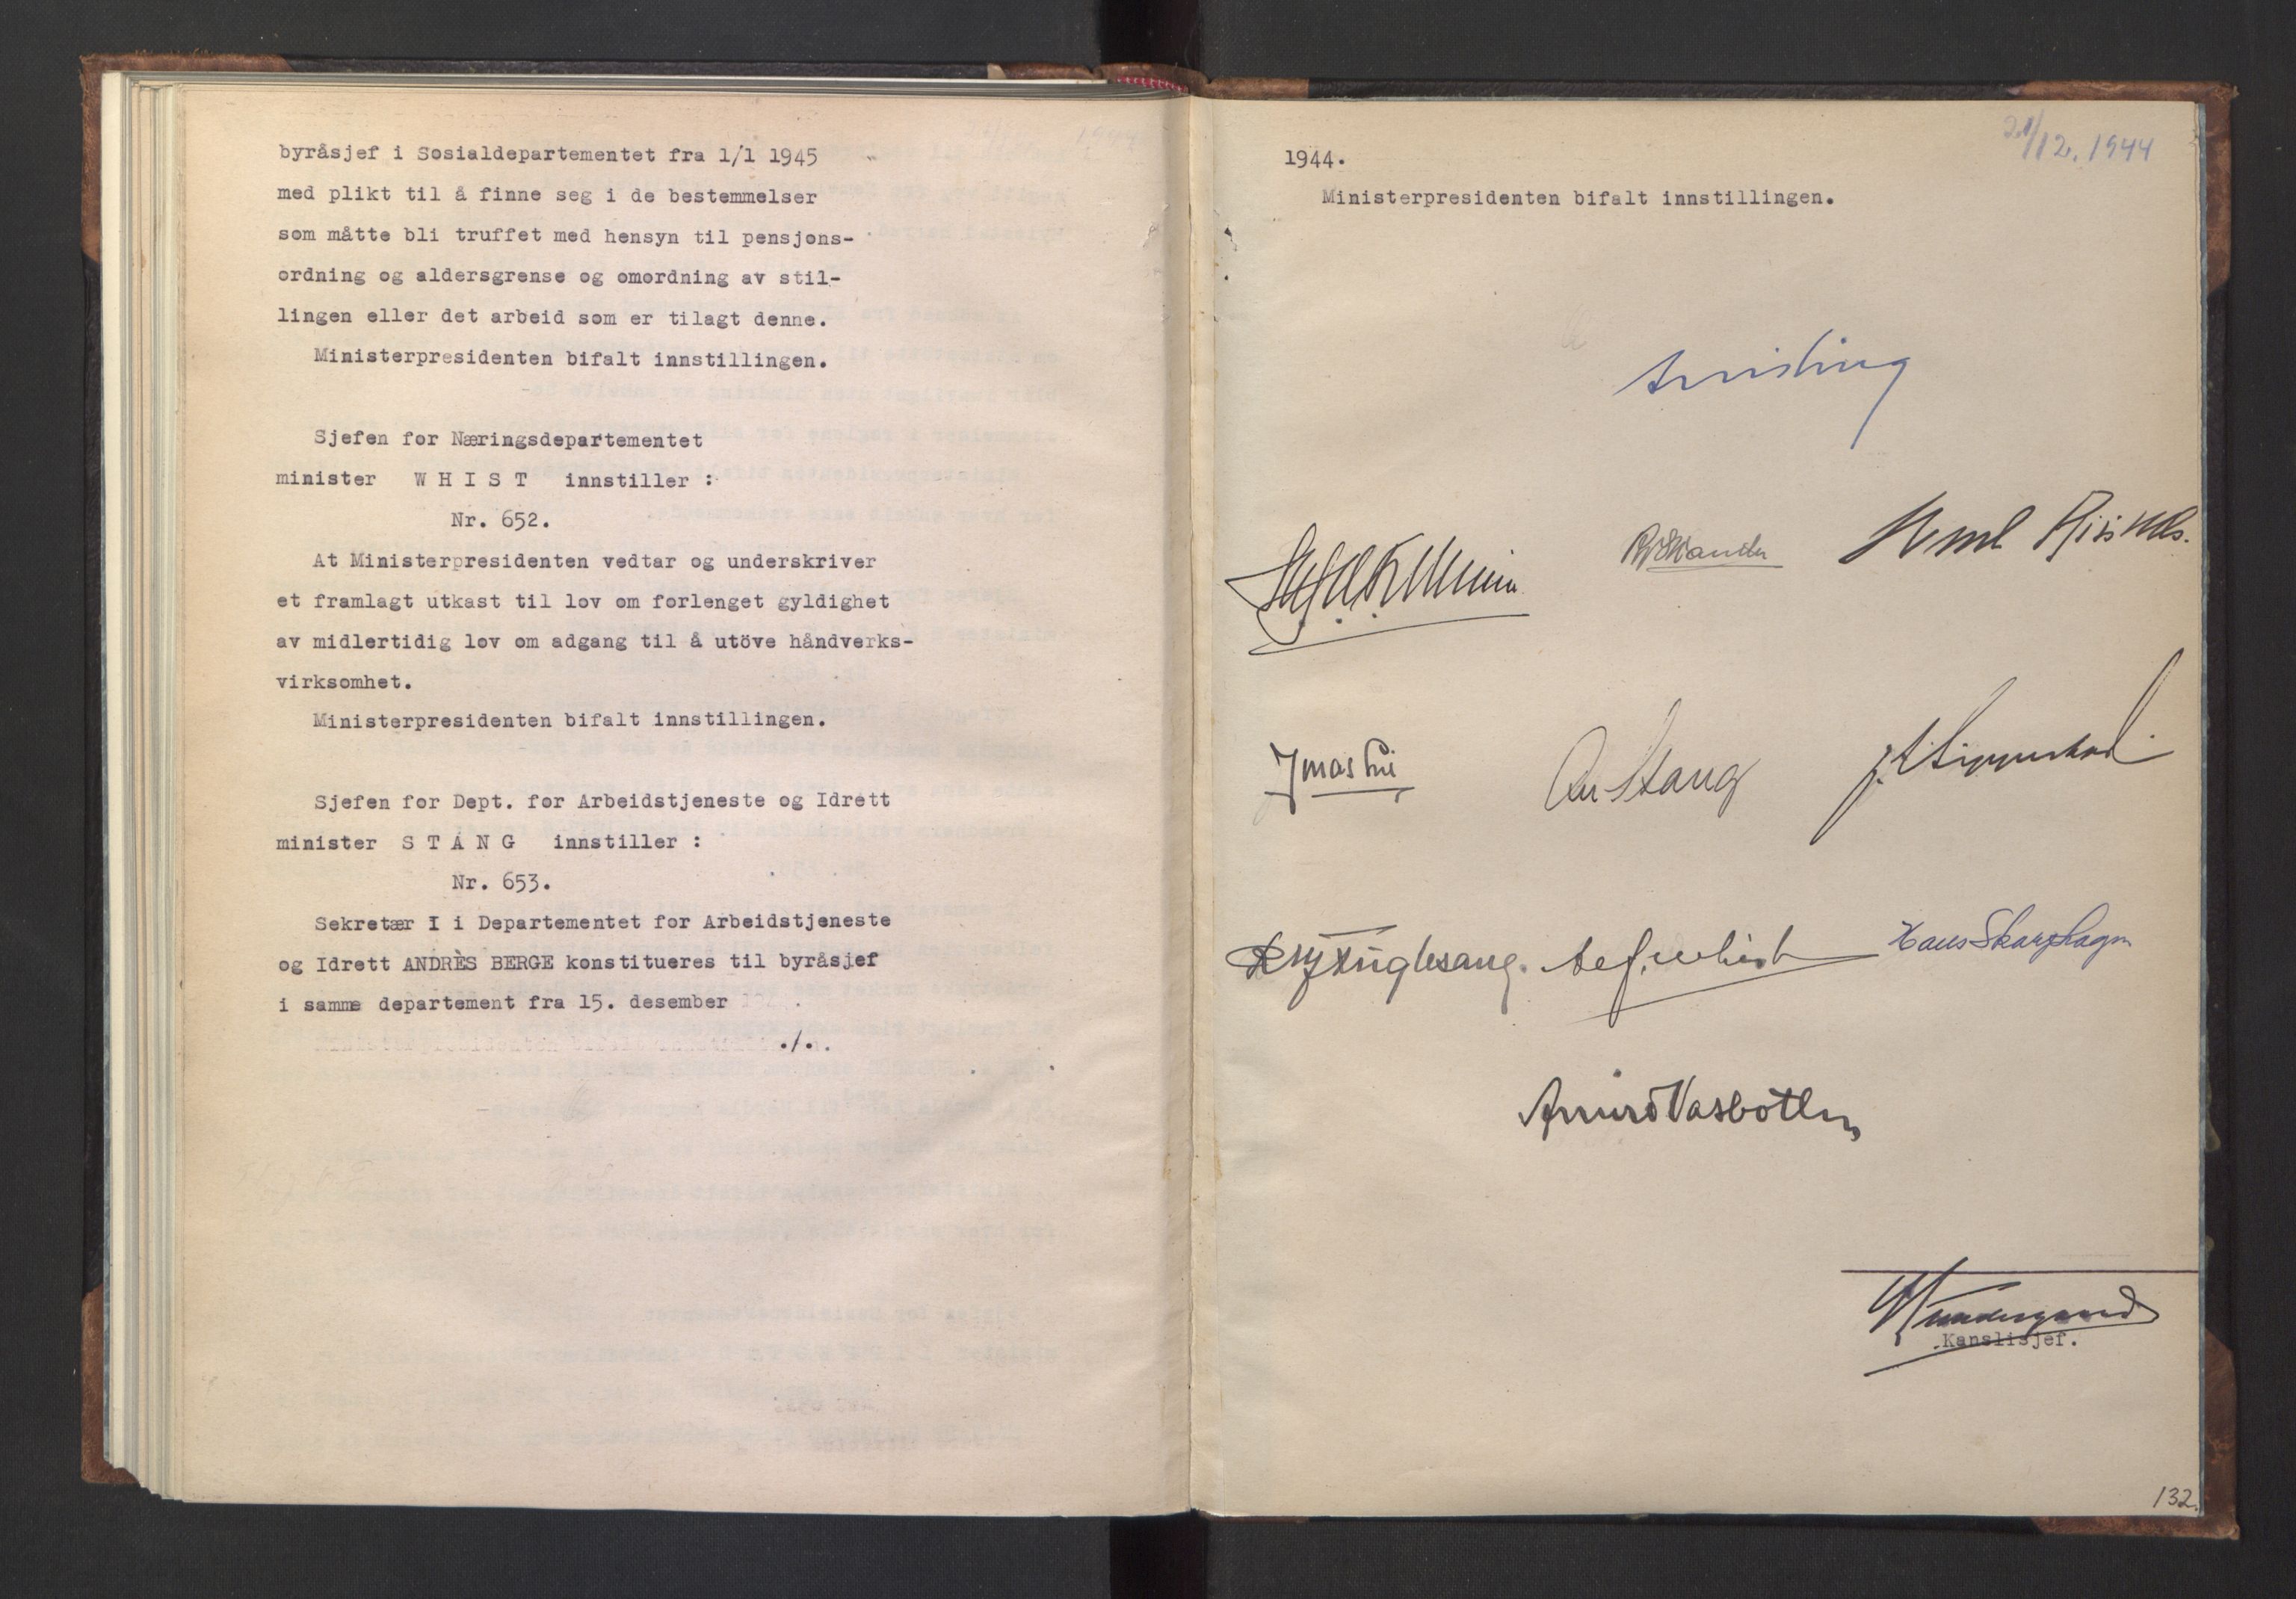 byråsjef i Sosialdepartementet fra 1/1 1945
med plikt til å finne seg i de bestemmelser
som måtte bli truffet med hensyn til pensjons-
ordning og aldersgrense og omordning av stil-
lingen eller det arbeid som er tilagt denne.
Ministerpresidenten bifalt innstillingen.
Sjefen for Næringsdepartementet
minister W H I S T innstiller :
Nr. 652.
At Ministerpresidenten vedtar og underskriver
et framlagt utkast til lov om forlenget gyldighet
av midlertidig lov om adgang til å utöve håndverks-
virksomhet.
Ministerpresidenten bifalt innstillingen.
Sjefen for Dept. for Arbeidstjeneste og Idrett
minister S T A N G innstiller :
Nr. 653.
Sekretær I i Departementet for Arbeidstjeneste
og Idrett ANDRÈS BERGE konstitueres til byråsjef
i samme departement fra 15. desember
./.
21/12. 1944
1944.
Ministerpresidenten bifalt innstillingen.
Quisling
RJSkancke Sverre Riisnæs.
Axel Stang
Alf Whist Hans Skarphagen
Arnvid Vasbotten
Kanslisjef.
132.